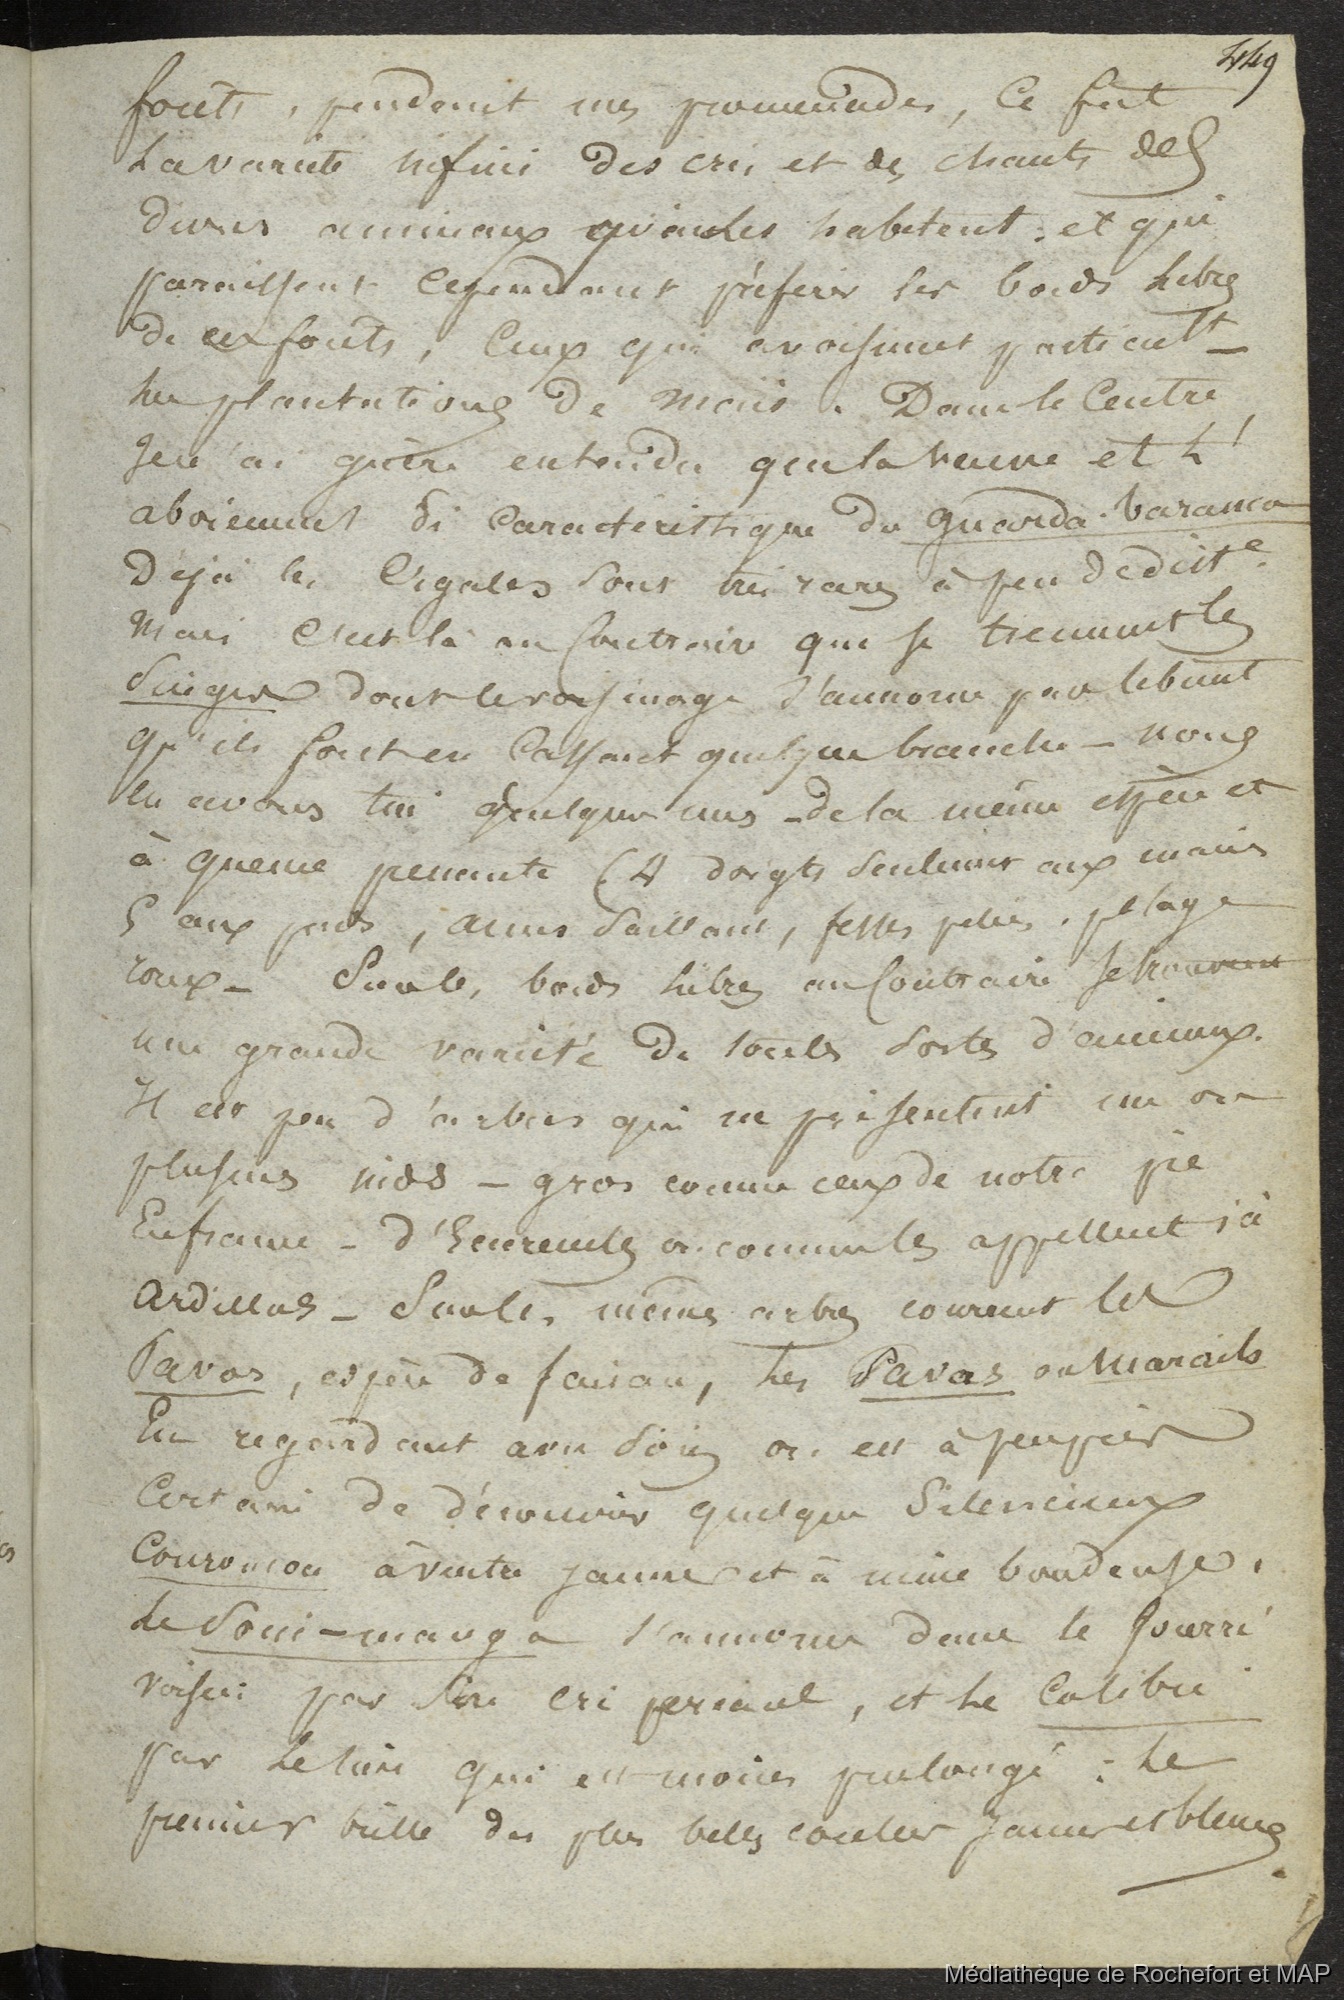 449
forêts, pendant mes promenades, Ce fut
La varieté infinie des cris et des chants des
divers animaux qui les habitent, et qui
paraissent Cependant préferer les bords libres
de ces forêts, Ceux qui avoisinent particult
les plantations de Maïs. Dans le Centre
Je n'ai guère entendu que la veuve et L'
aboiement si Caractéristique du Guarda-baranca
Déjà les Cigales sont très rares à peu de distce.
Mais C'est là au Contraire que se tiennent les
Singes dont le voisinage s'annonce par le bruit
qu'ils font en Cassant quelque branche - nous
en avons tué quelques uns - de la même espèce et
à queue prenante (4 doigts seulement aux mains
5 aux pieds, anus saillant, fesses pelées, pelage
roux - Sur les bords libres au Contraire se trouvent
une grande varieté de toutes sortes d'animaux.
Il est peu d'arbres qui ne présentent un ou
plusieurs nids - gros comme ceux de notre pie
En france - d'Ecureuils ou comme les appellent ici
Ardillas - Sur les mêmes arbres courent les
Pavos, espèce de faisan, Les Pavas ou Marails
En regardant avec soin on est à peu près
Certain de découvrir quelque Silencieux
Couroucou à ventre jaune et à mine boudeuse.
Le Soui-manga s'annonce dans le fourré
voisin par son cri perçant, et Le Colibri
par Le sien qui est moins prolongé : Le
premier brille des plus belles couleurs jaunes et bleues.
Médiathèque de Rochefort et MAP